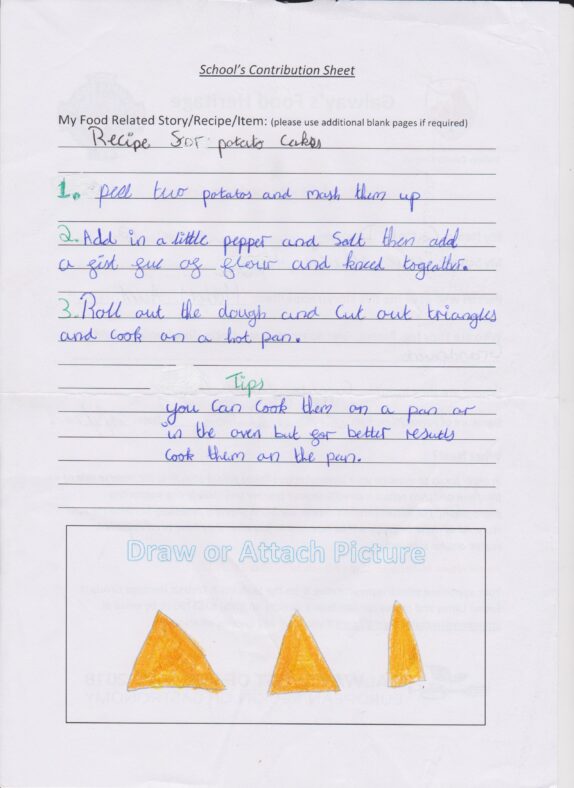 School's Contribution Sheet
My Food Related Story/Recipe/Item: (please use additional blank pages if required)
Recipe for potato cakes
1. peel two potatos and mash them up
2. Add in a little pepper and Salt then add
a fist full of flour and kneed togeather.
3. Roll out the dough and Cut out triangles
and cook on a hot pan.
Tips
you can cook them on a pan or
in the oven but for better results
cook them on the pan.
Draw or Attach Picture